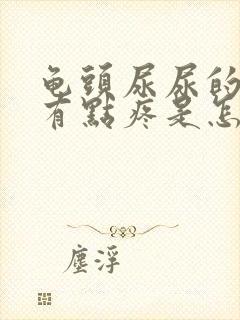 龟頭尿尿的
有點疼是怎
塵浮